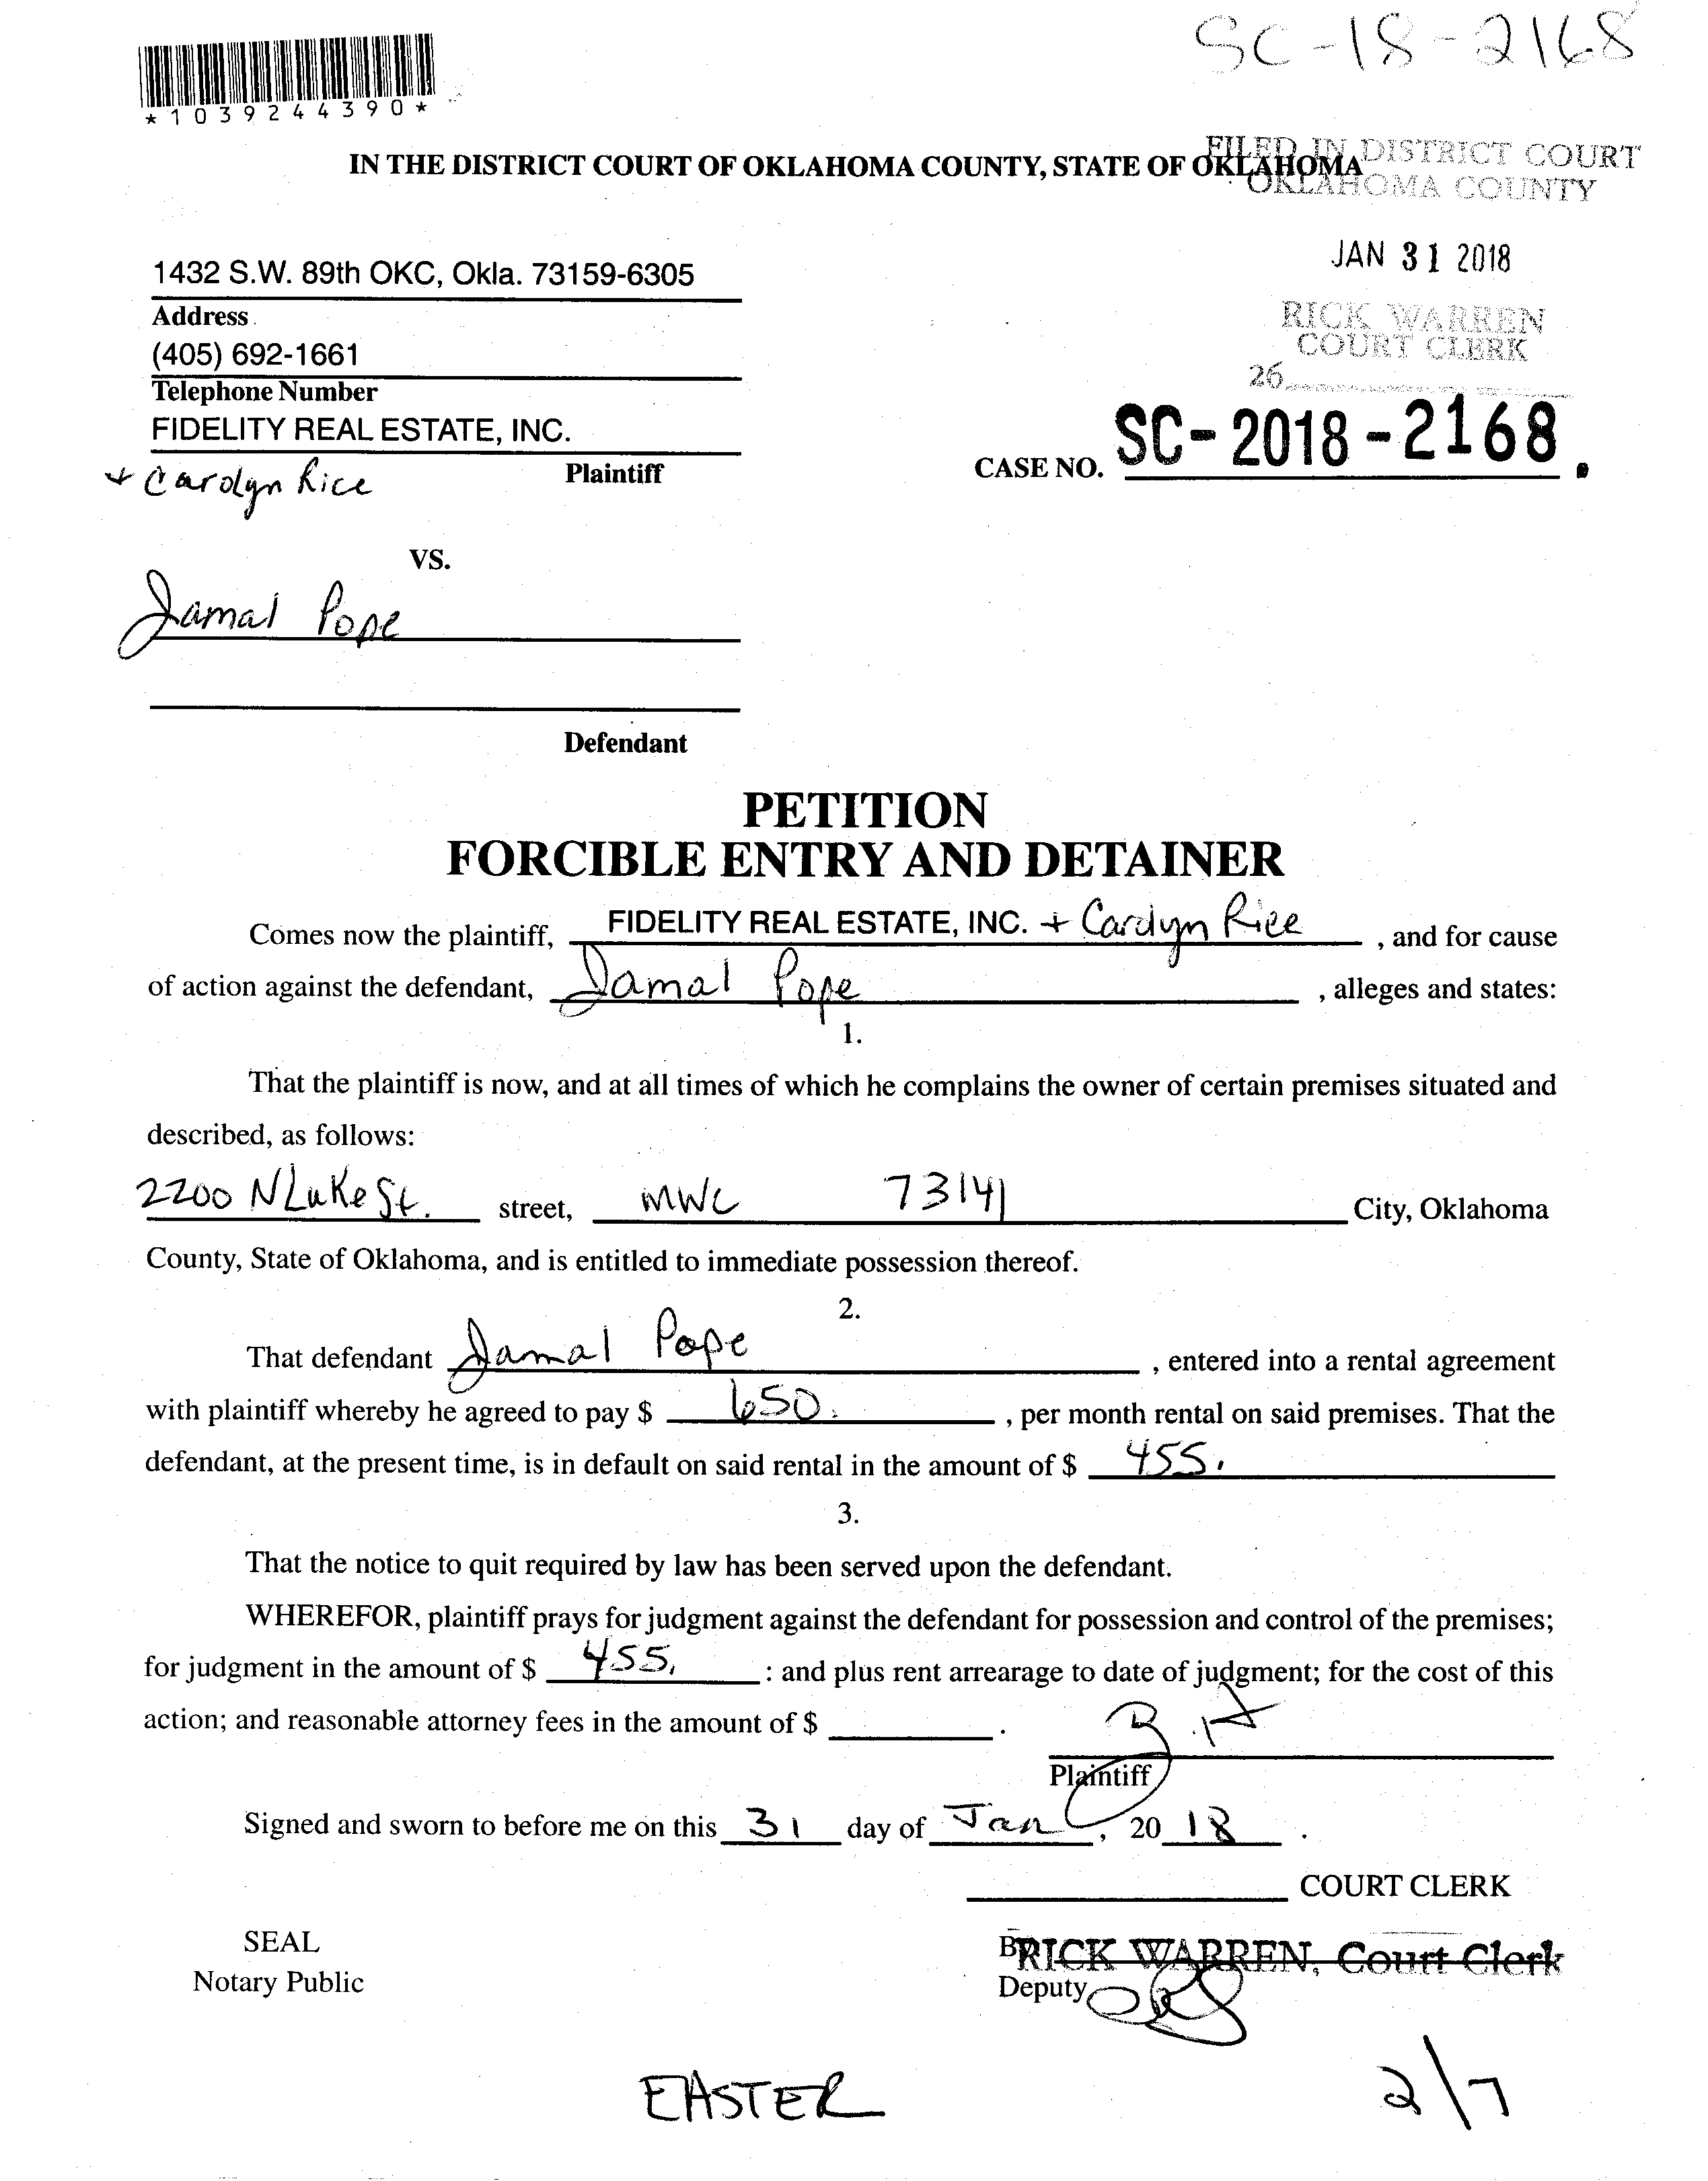 SC-18-2168
*1039244390*
IN THE DISTRICT COURT OF OKLAHOMA COUNTY, STATE OF OKLAHOMA
FILED IN DISTRICT COURT
OKLAHOMA COUNTY
JAN 31 2018
RICK WARREN
COURT CLERK
26
1432 S.W. 89th OKC, Okla. 73159-6305
Address
(405) 692-1661
Telephone Number
FIDELITY REAL ESTATE, INC.
+ Carolyn Rice Plaintiff
CASE NO. SC-2018-2168.
VS.
Jamal Pope
Defendant
PETITION
FORCIBLE ENTRY AND DETAINER
Comes now the plaintiff, FIDELITY REAL ESTATE, INC. + Carolyn Rice, and for cause
of action against the defendant, Jamal Pope, alleges and states:
1.
That the plaintiff is now, and at all times of which he complains the owner of certain premises situated and
described, as follows:
2200 N Luke St. street, MWC 73141 City, Oklahoma
County, State of Oklahoma, and is entitled to immediate possession thereof.
2.
That defendant Jamal Pope, entered into a rental agreement
with plaintiff whereby he agreed to pay $ 650., per month rental on said premises. That the
defendant, at the present time, is in default on said rental in the amount of $ 455.
3.
That the notice to quit required by law has been served upon the defendant.
WHEREFOR, plaintiff prays for judgment against the defendant for possession and control of the premises;
for judgment in the amount of $ 455. : and plus rent arrearage to date of judgment; for the cost of this
action; and reasonable attorney fees in the amount of $ .
Plaintiff
Signed and sworn to before me on this 31 day of Jan, 20 18.
COURT CLERK
SEAL
Notary Public
By RICK WARREN, Court Clerk
Deputy
EASTER
2/7